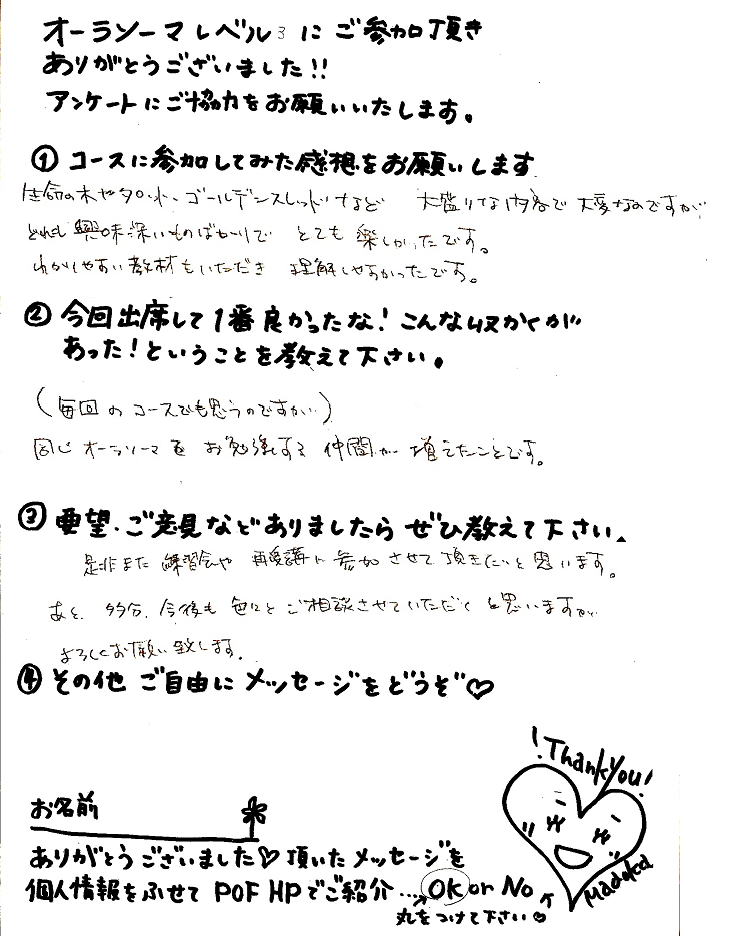 オーラソーマレベル3 にご参加頂き
ありがとうございました!!
アンケートにご協力をお願いいたします。
① コースに参加してみた感想をお願いします
生命の木やタロット、ゴールデンスレッドなど 大盛りな内容で 大変なのですが
どれも興味深いものばかりで とても 楽しかったです。
わかりやすい教材もいただき 理解しやすかったです。
② 今回出席して1番良かったな!こんな収かくが
あった!ということを教えて下さい。
(毎回のコースでも思うのですが…)
同じ オーラソーマを お勉強する 仲間が 増えたことです。
③ 要望、ご意見などありましたら ぜひ教えて下さい、
是非また 練習会や 再受講に 参加させて頂きたいと思います。
あと、多分、今後も 色々とご相談させていただくと思いますが、
よろしくお願い致します。
④ その他 ご自由に メッセージをどうぞ♡
!Thank You!
お名前
ありがとうございました♡ 頂いた メッセージを
個人情報をふせて POF HPでご紹介…OK or No
丸をつけて下さい♡
Madoka